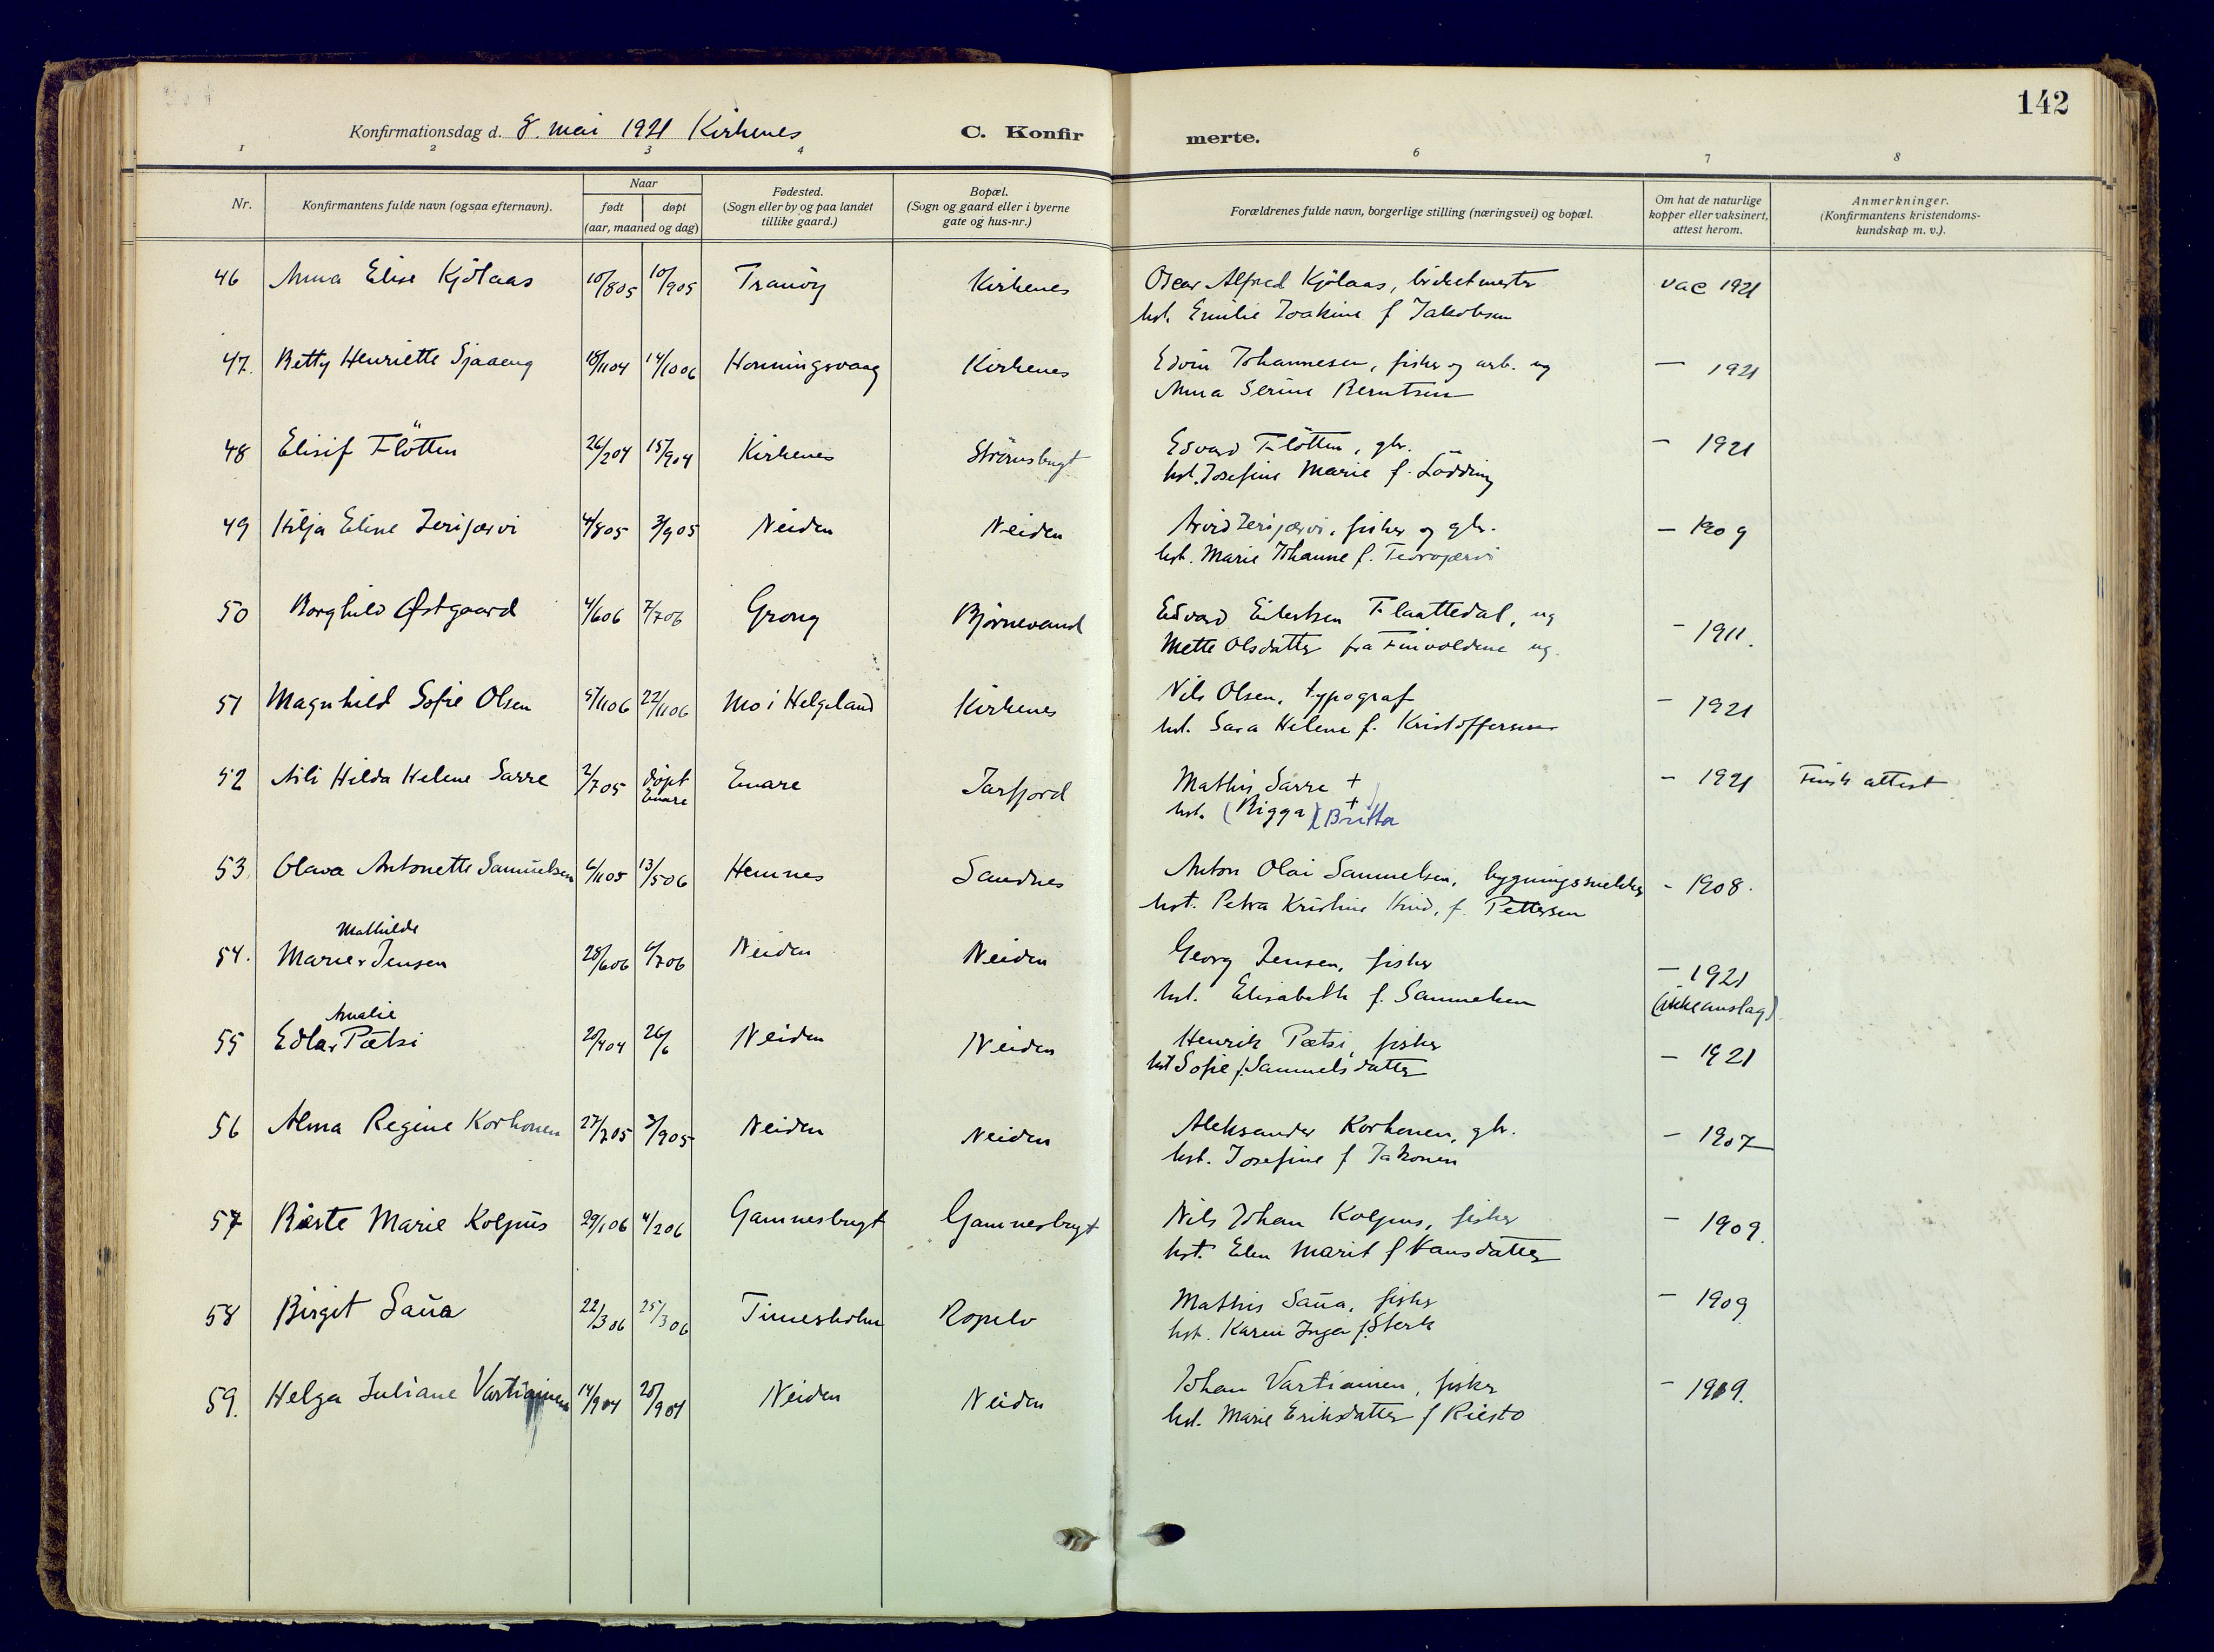 142
Konfirmationsdag d. 8. mai 1921 Kirkenes C. Konfirmerte.
1 2 3 4 6 7 8
Nr. Konfirmantens fulde navn (ogsaa efternavn). Naar født døpt (aar, maaned og dag) Fødested. (Sogn eller by og paa landet tillike gaard.) Bopæl. (Sogn og gaard eller i byerne gate og hus-nr.) Forældrenes fulde navn, borgerlige stilling (næringsvei) og bopæl. Om hat de naturlige kopper eller vaksinert, attest herom. Anmerkninger. (Konfirmantens kristendoms-kundskap m. v.).
46 Anna Elise Kjölaas 10/8 05 10/9 05 Tranöy Kirkenes Oscar Alfred Kjölaas, vac 1921
hst. Emilie Joakine f Jakobsen
47. Betty Henriette Sjaaeng 18/11 04 14/10 06 Honningsvaag Kirkenes Edvin Johannesen, fisker og arb. ug — 1921
Anna Serine Berntsen
48 Elisif Flötten 26/2 04 15/9 04 Kirkenes Strömsbugt Edvard Flötten, gbr. — 1921
hst. Josefine Marie f. Lödding
49 Hilja Eline Jerijærvi 4/8 05 3/9 05 Neiden Neiden Arvid Jerijærvi, fisker og gbr. — 1909
hst. Marie Johanne f.
50 Borghild Østgaard 4/6 06 7/7 06 Grong Björnevand Edvard Eilertsen Flaattedal, ug — 1911.
Mette Olsdatter fra Finvoldene ug.
51 Magnhild Sofie Olsen 5/11 06 22/11 06 Mo i Helgeland Kirkenes Nils Olsen, typograf — 1921
hst. Sara Helene f. Kristoffersen
52 Aili Hilda Helene Sarre 2/7 05 døpt Enare Enare Jarfjord Mathis Sarre + — 1921 Finsk attest
hst. (Bigga) + Britta
53. Olava Antonette Samuelsen 6/11 05 13/5 06 Hemnes Sandnes Anton Olai Samuelsen, bygningssnekker — 1908.
hst. Petra Kristine f. Pettersen
54. Marie Mathilde Jensen 28/6 06 6/7 06 Neiden Neiden Georg Jensen, fisker — 1921
hst. Elisabeth f. Samuelsen (ikke anslag)
55 Edla Amalie Pætsi 20/4 04 26/6 Neiden Neiden Henrik Pætsi, fisker — 1921
hst Sofie f. Samuelsdatter
56 Alma Regine Korhonen 27/7 05 3/9 05 Neiden Neiden Aleksander Korhonen, gbr. — 1907
hst. Josefine f
57 Birste Marie Kolpus 29/1 06 4/2 06 Gamnesbugt Gamnesbugt Nils Johan Kolpus, fisker — 1909.
hst. Elen Marit f Hansdatter
58 Birgit Saua 22/3 06 25/3 06 Timesholm Ropelv Mathis Saua, fisker — 1909
hst. Karen Inga f. Sterk
59. Helga Juliane Vartiainen 14/9 04 25/9 04 Neiden Neiden Johan Vartiainen, fisker — 1919.
hst. Marie Eriksdatter f Riesto